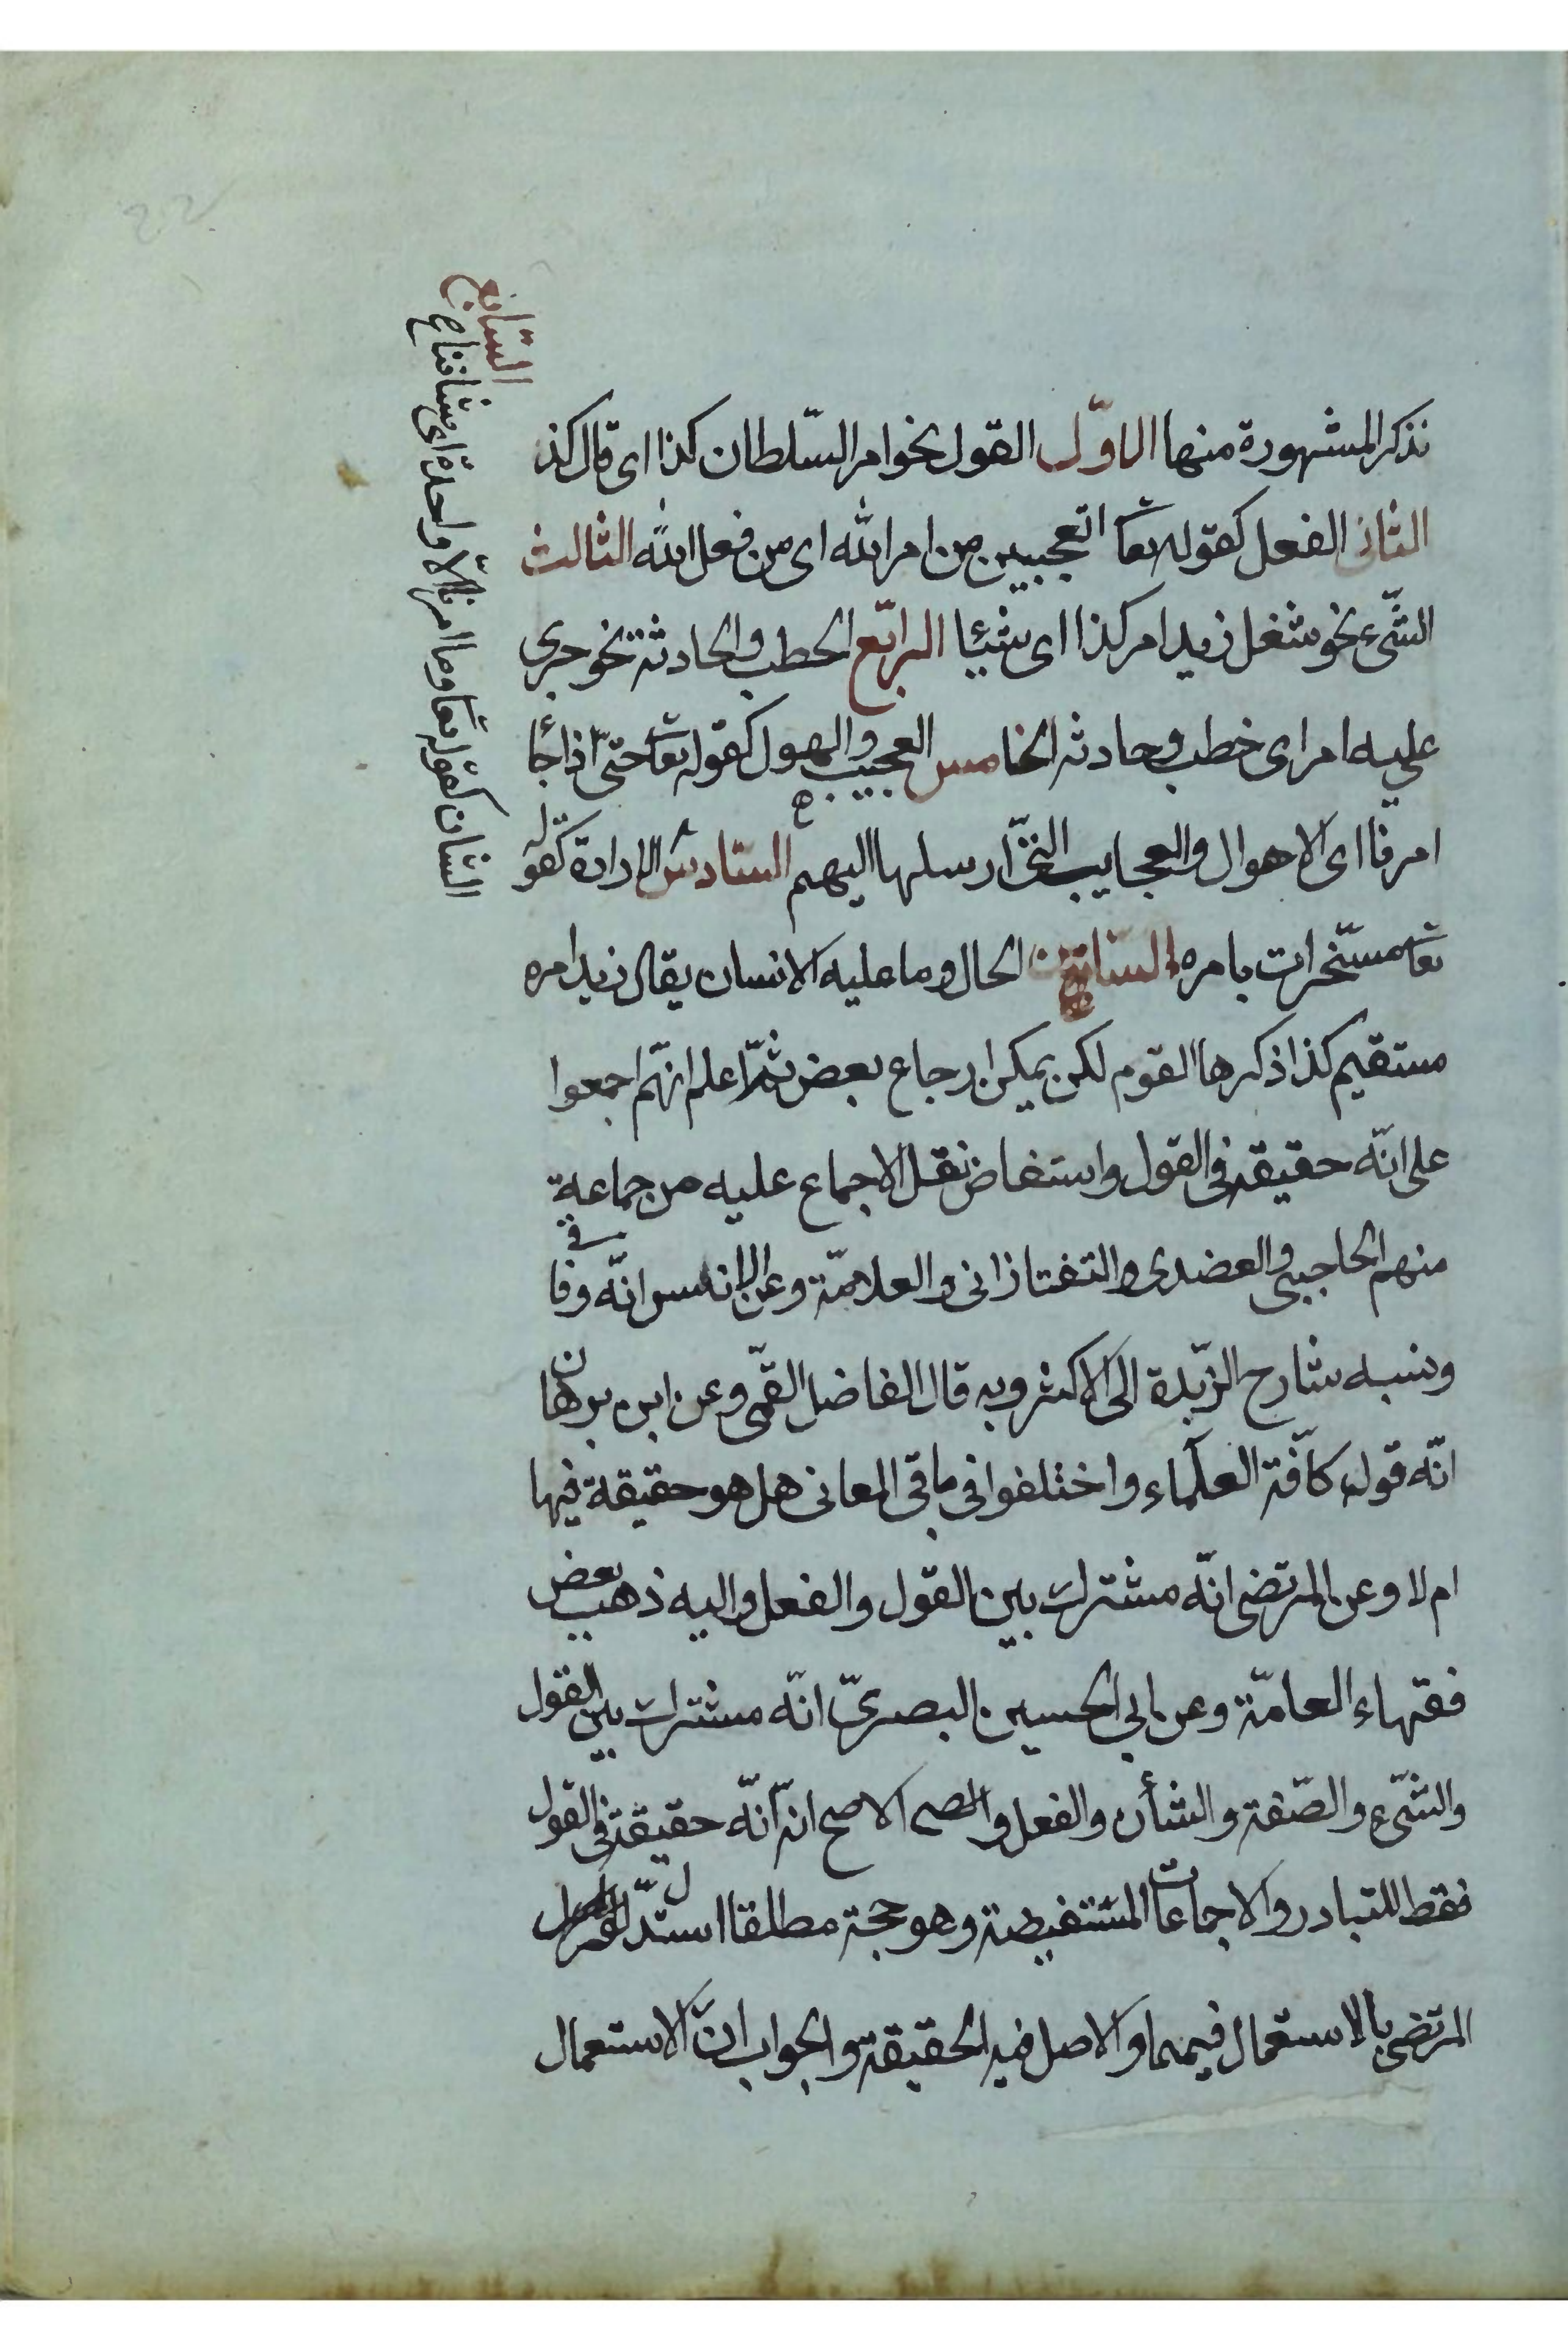 نذكر المشهورة منها الاوّل القول نحو امر السّلطان كذا اى قال كذ
الثانى الفعل كقوله تعا اتعجبين من امر الله اى من فعل الله الثالث
الشّىء نحو شغل زيدا امر كذا اى شيئا الرابع الخطب والحادثة نحو جرى
عليه امر اى خطب وحادثه الخامس العجيب والهول كقوله تعا حتّى اذا جا
امرنا اى الاهوال والعجايب التى ارسلها اليهم السّادس الارادة كقوله
تعا مسخّرات بامره الحال وما عليه الانسان يقال زيد امره
مستقيم كذا ذكرها القوم لكن يمكن ارجاع بعض ثمّ اعلم انّهم اجمعوا
على انّه حقيقة فى القول واستفاض نقل الاجماع عليه من جماعة
منهم الحاجبى والعضدى والتفتازانى والعلامّة وعن انّه وفاقى
ونسبه شارح الزّبدة الى الاكثر وبه قال الفاضل القمّى وعن ابن برهان
انّه قول كافّة العلماء واختلفوا فى باقى المعانى هل هو حقيقة فيها
ام لا وعن المرتضى انّه مشترك بين القول والفعل واليه ذهب بعض
فقهاء العامّة وعن ابى الحسين البصرىّ انّه مشترك بين القول
والشّىء والصّفة والشأن والفعل والاصح انّه حقيقة فى القول
فقط للتبادر والاجماعات المستفيضة وهو حجة مطلقا استدل
المرتضى بالاستعمال فيهما والاصل فيه الحقيقة والجواب انّ الاستعمال
السّابع
الشان كقوله تعا وما امرنا الّا واحدة اى شاننا